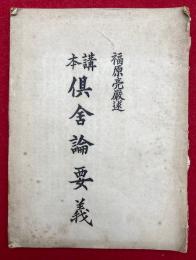 福原亮厳述
講本 倶舎論要義